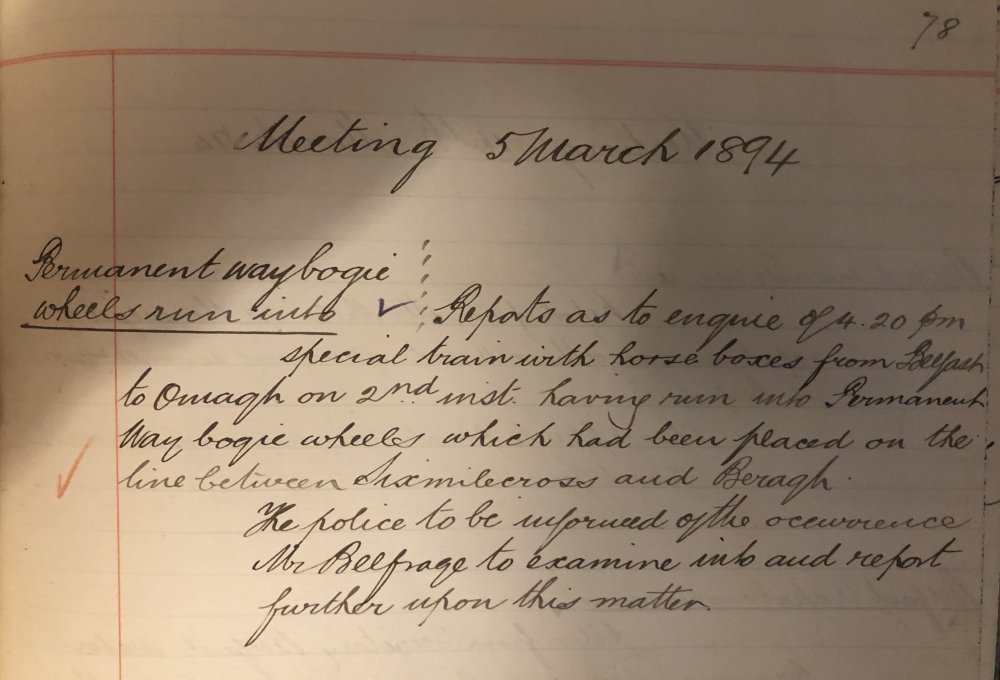 78
Meeting 5 March 1894
Permanent way bogie
wheels run into ✓ Reports as to engine of 4.20 pm
special train with horse boxes from Belfast
to Omagh on 2nd inst. having run into Permanent
Way bogie wheels which had been placed on the
line between Sixmilecross and Beragh.
The police to be informed of the occurrence
Mr Belfrage to examine into and report
further upon this matter.